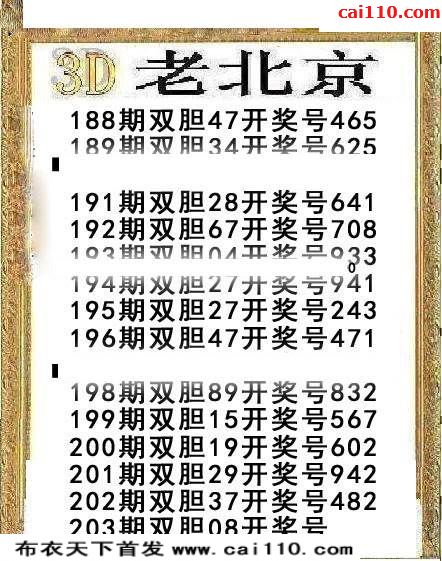 cai110.com
3D 老北京
188期双胆47开奖号465
189期双胆34开奖号625
191期双胆28开奖号641
192期双胆67开奖号708
193期双胆04开奖号933
0
194期双胆27开奖号941
195期双胆27开奖号243
196期双胆47开奖号471
198期双胆89开奖号832
199期双胆15开奖号567
200期双胆19开奖号602
201期双胆29开奖号942
202期双胆37开奖号482
203期双胆08开奖号
布衣天下首发 www.cai110.com